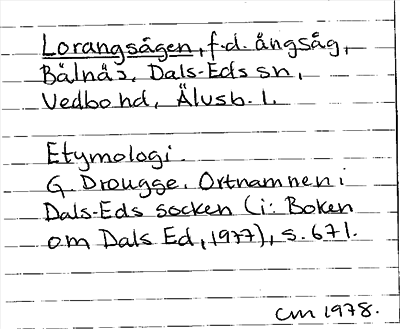 Lorangsågen, f.d. ångsåg,
Bälnäs, Dals-Eds sn,
Vedbo hd, Älvsb. l.
Etymologi.
G. Drougge. Ortnamnen i
Dals-Eds socken (i: Boken
om Dals Ed, 1977), s. 671.
CM 1978.